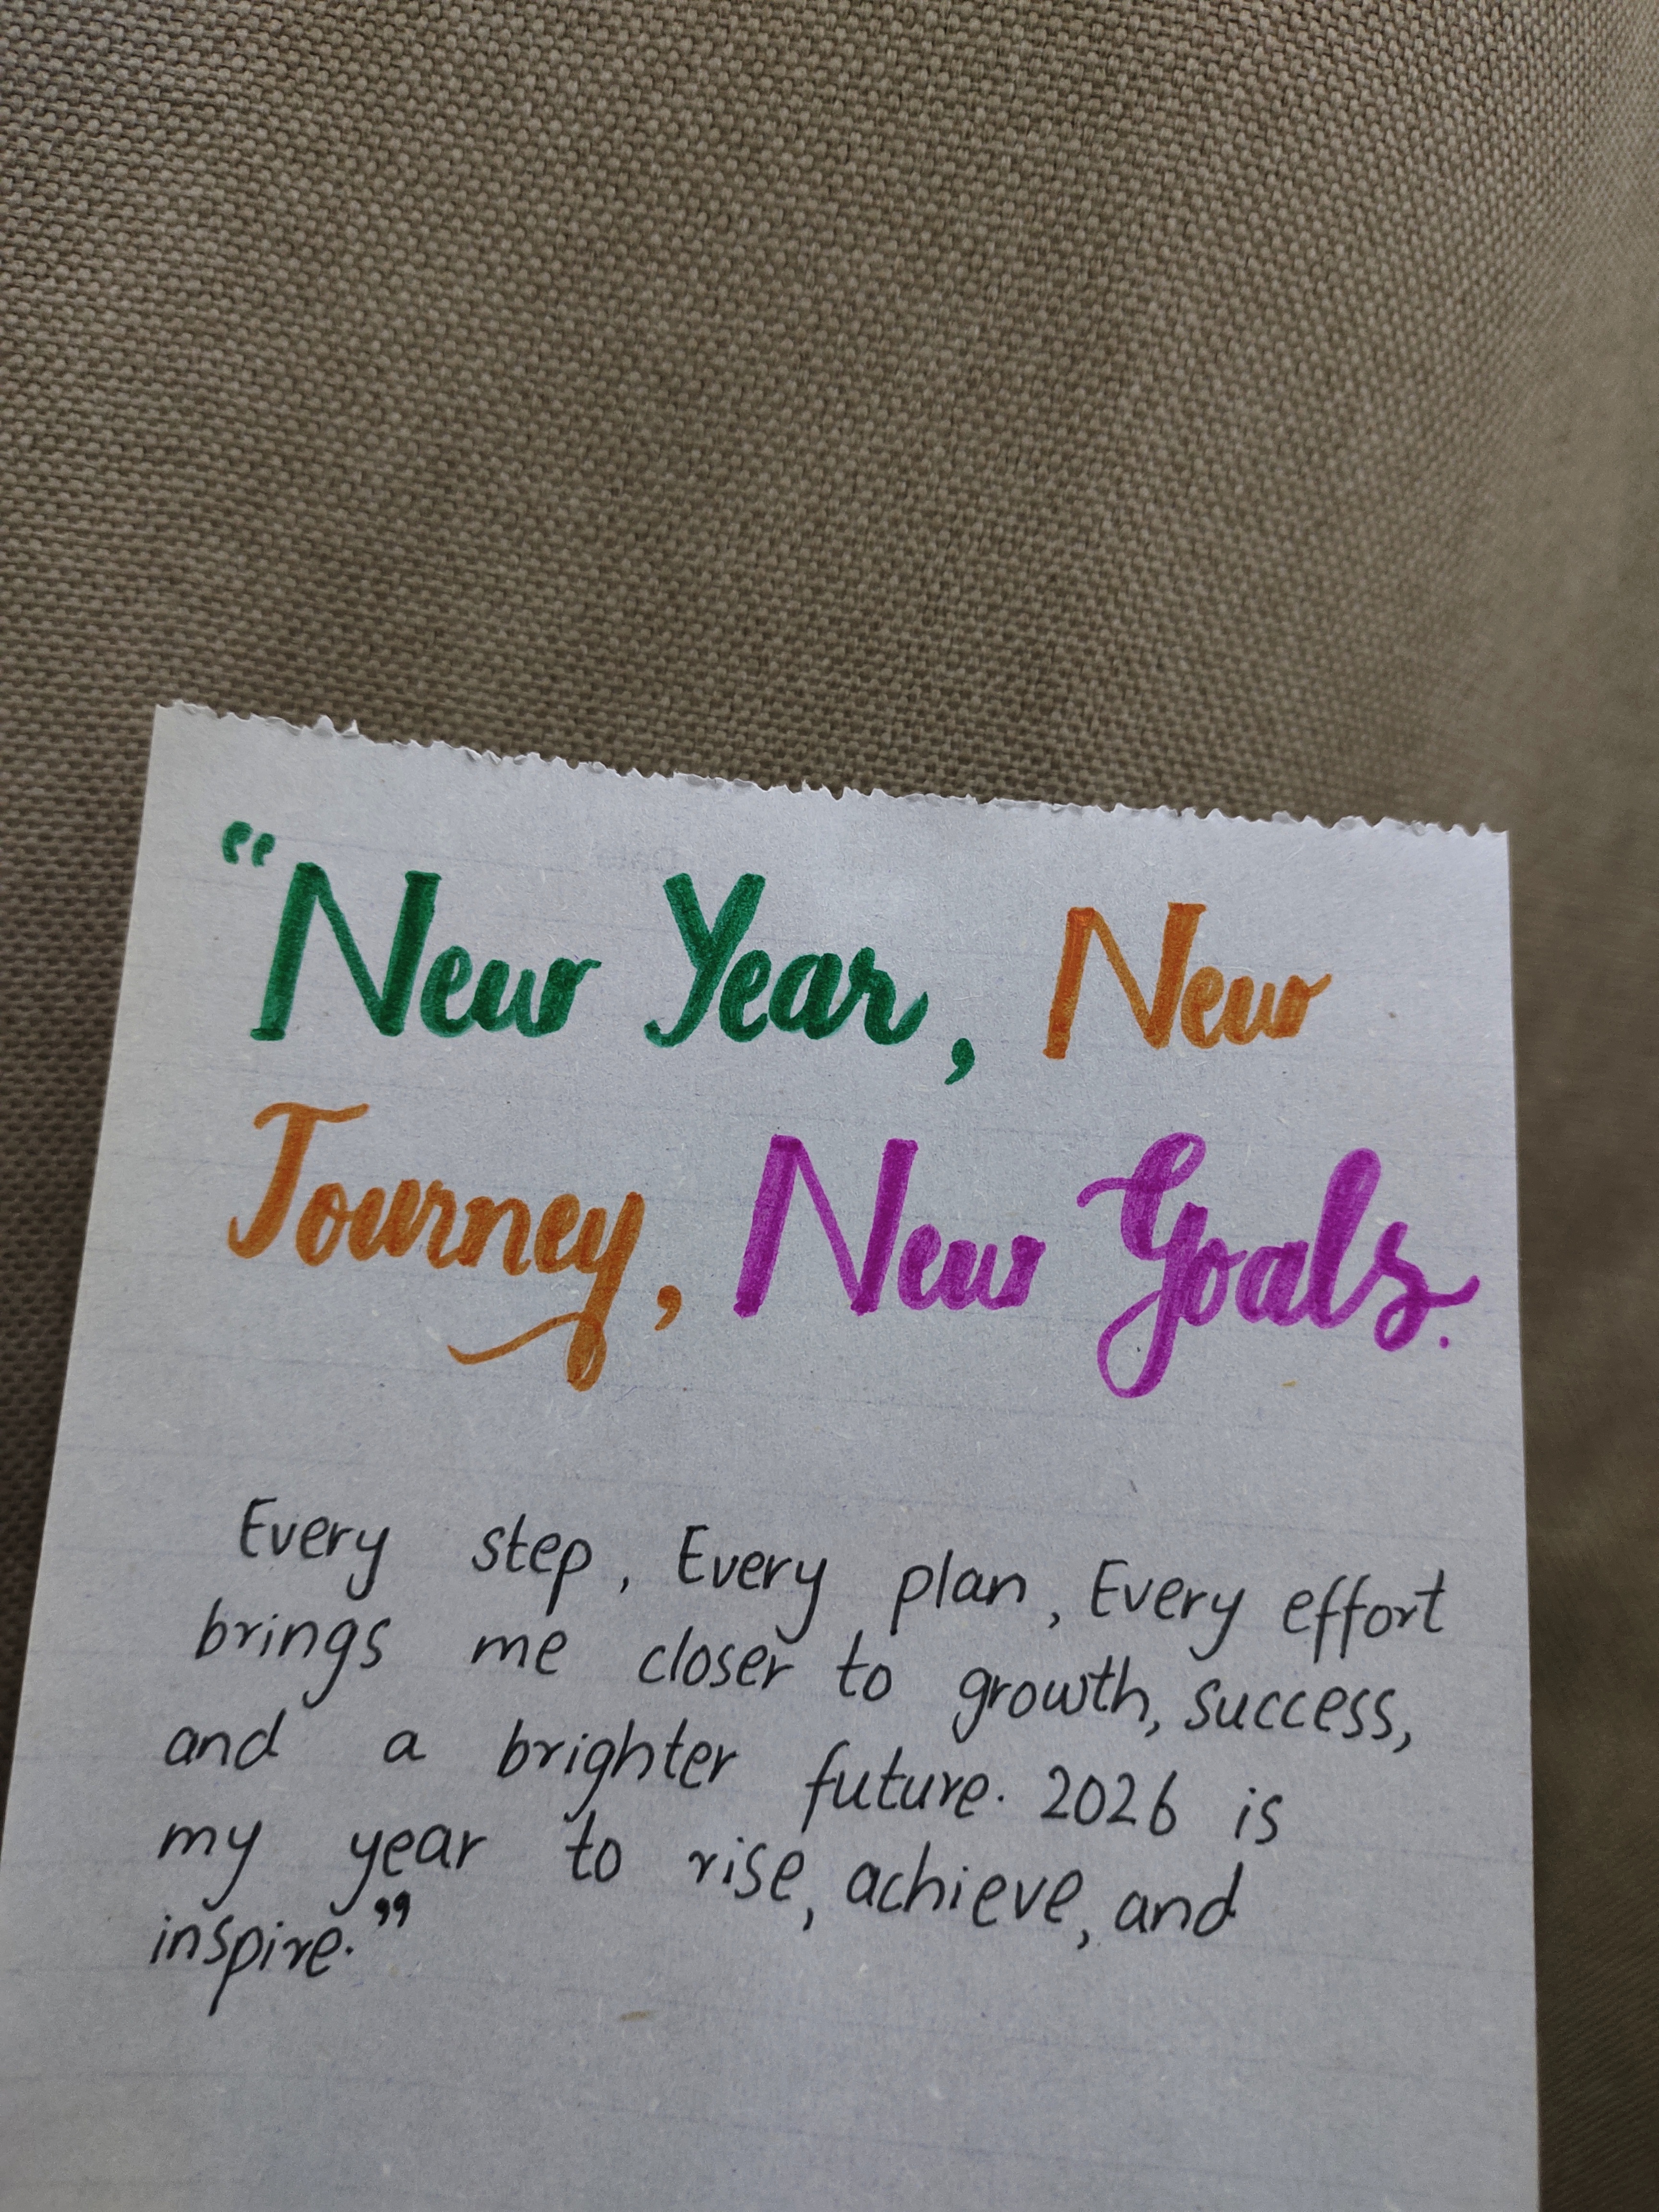 “New Year, New
Journey, New Goals.
Every step, Every plan, Every effort
brings me closer to growth, success,
and a brighter future. 2026 is
my year to rise, achieve, and
inspire.”